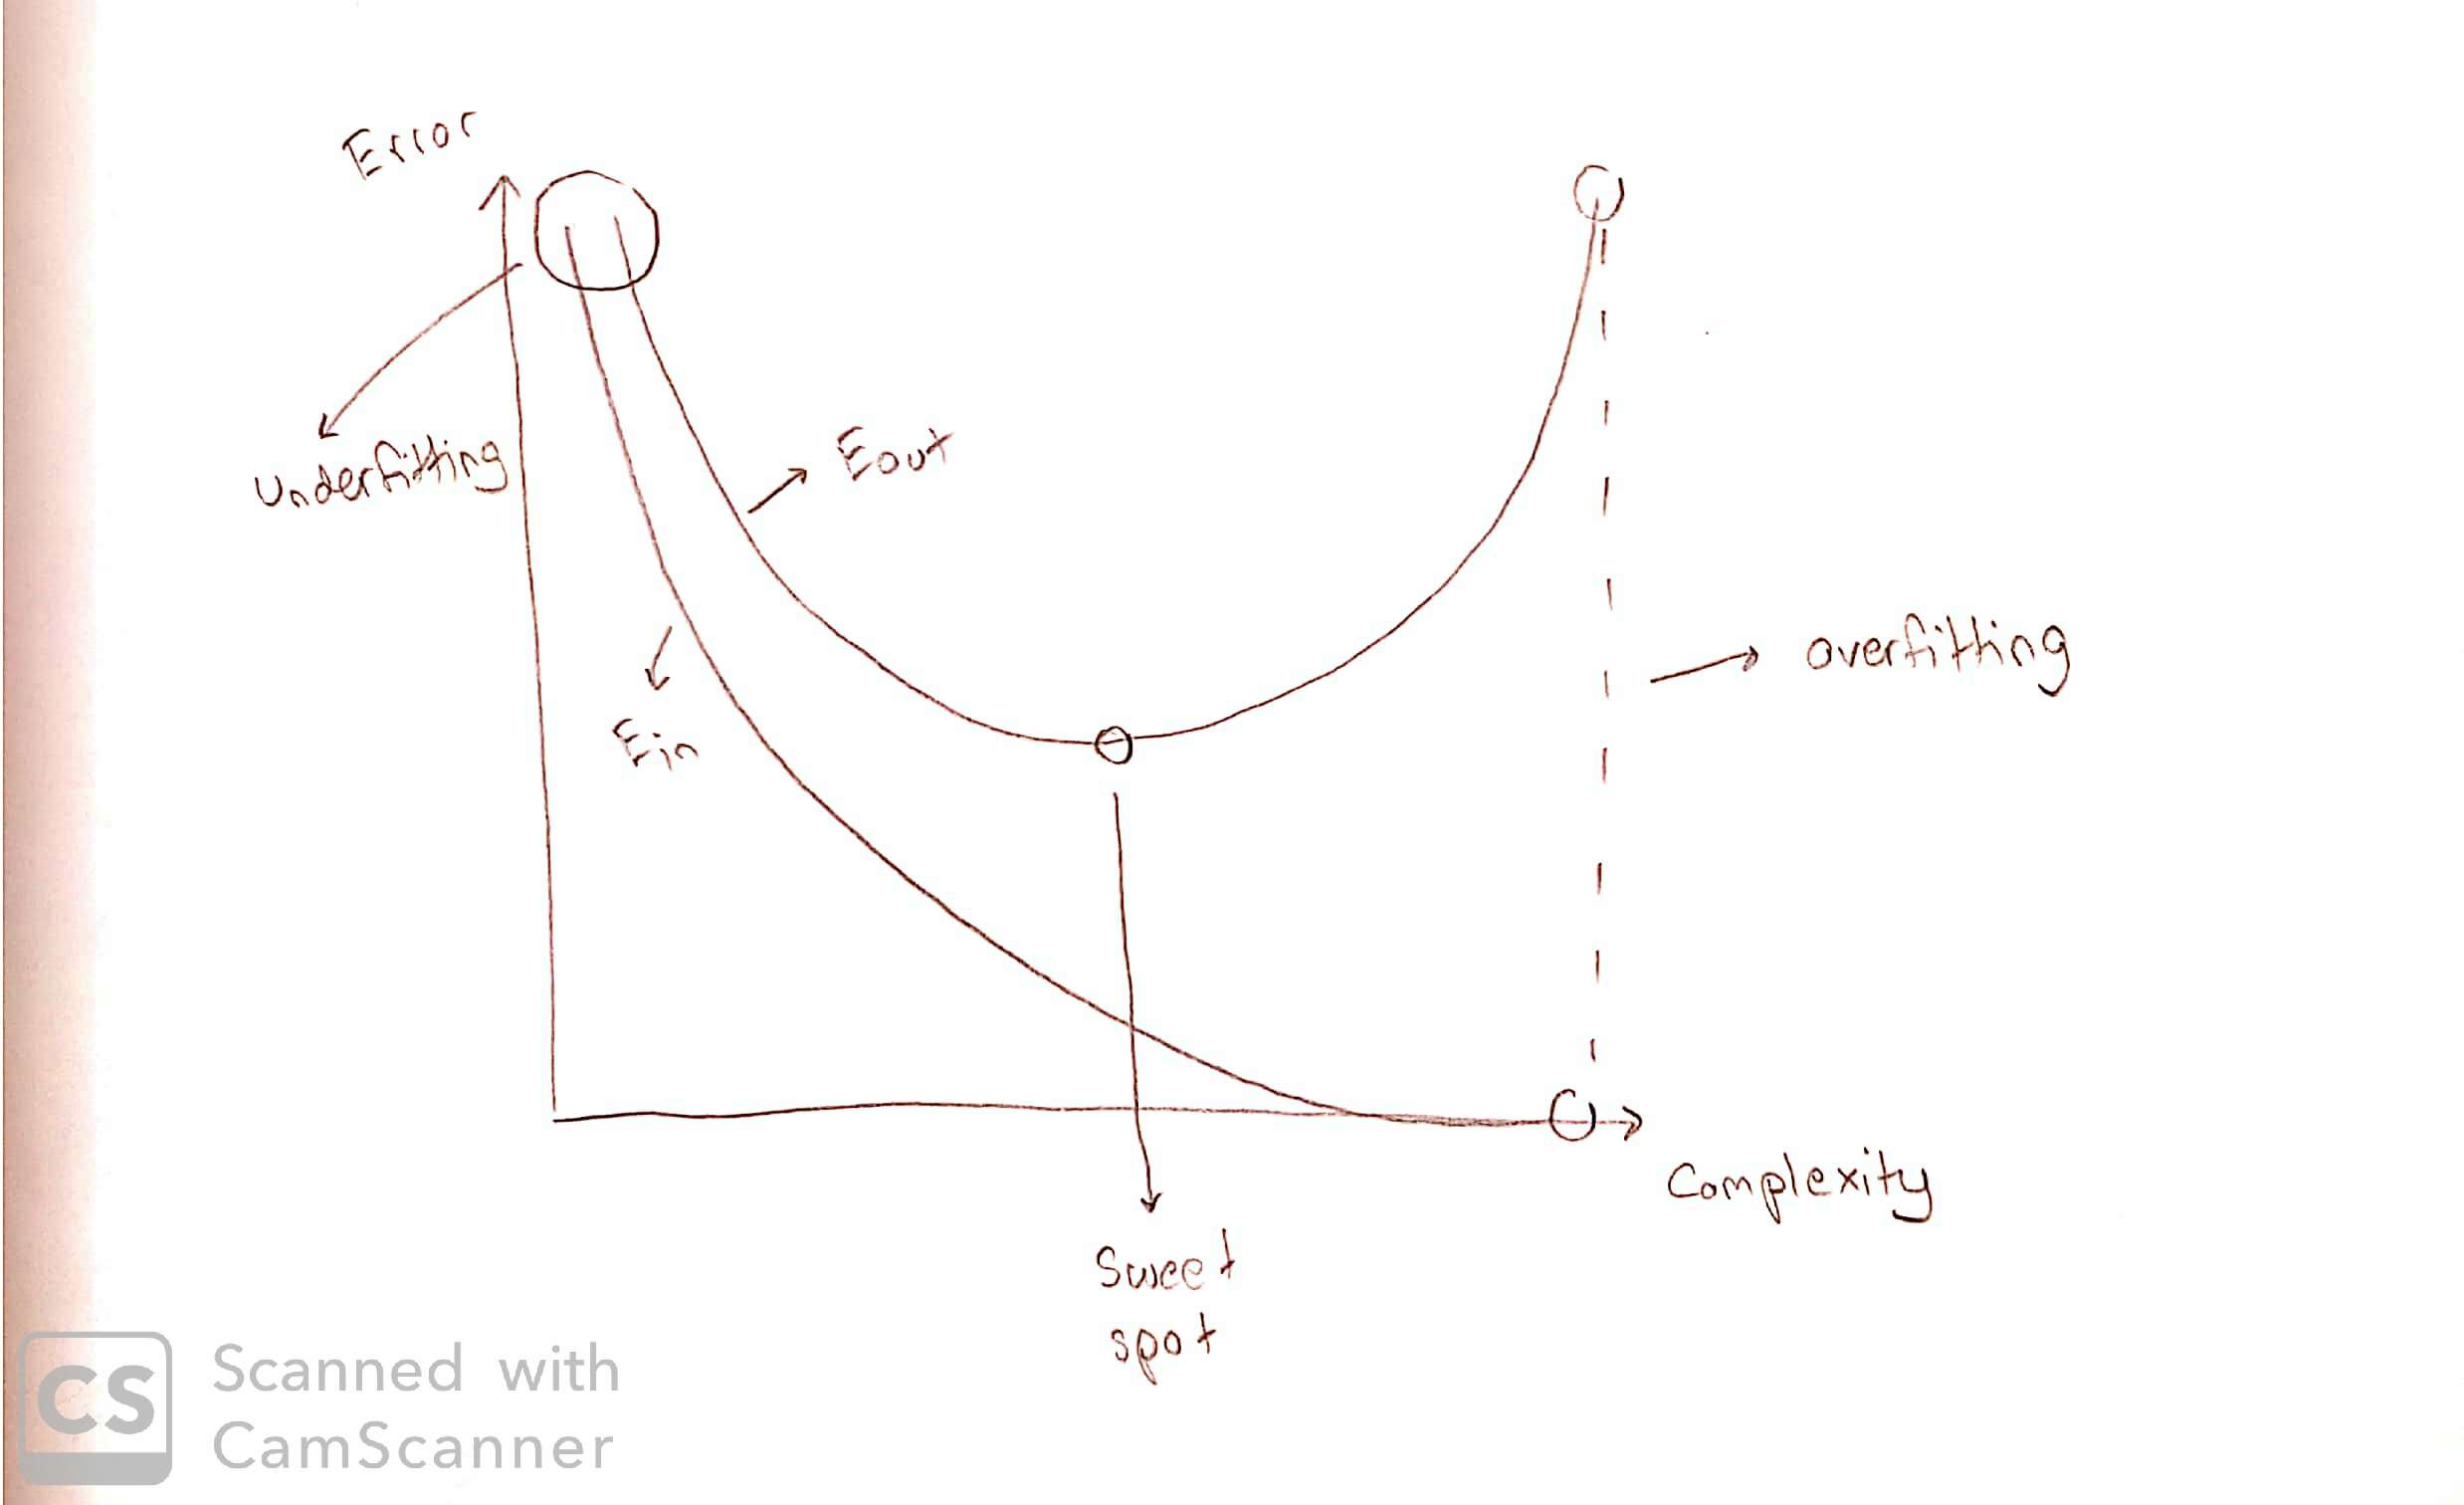 Error
Underfitting
Eout
Ein
overfitting
Complexity
Sweet
spot
CS
Scanned with
CamScanner